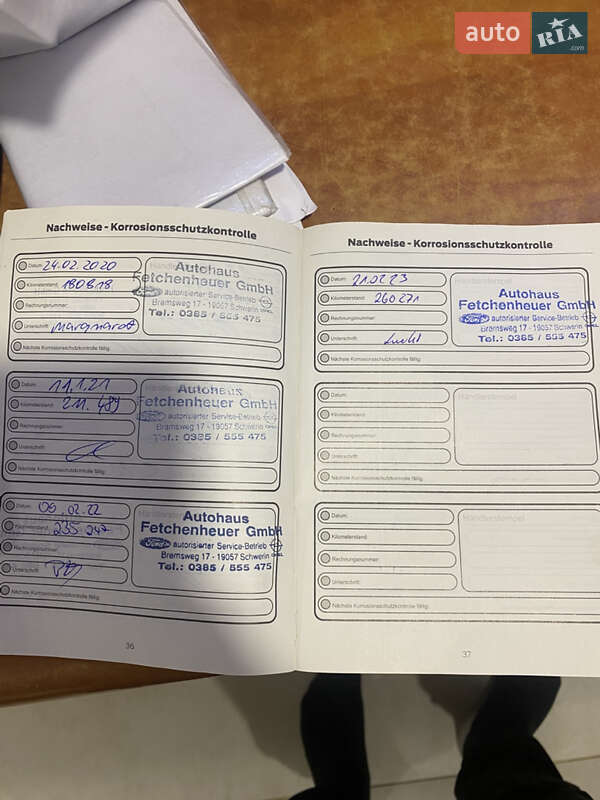 auto RIA.com
Nachweise - Korrosionsschutzkontrolle
Datum: 24.02.2020
Kilometerstand: 180818
Rechnungsnummer:
Unterschrift: Marquardt
Nächste Korrosionsschutzkontrolle fällig:
Autohaus
Fetchenheuer GmbH
autorisierter Service-Betrieb
Bremsweg 17 - 19057 Schwerin
Tel.: 0385 / 555 475
Datum: 11.1.21
Kilometerstand: 211.489
Rechnungsnummer:
Unterschrift:
Nächste Korrosionsschutzkontrolle fällig:
Autohaus
Fetchenheuer GmbH
autorisierter Service-Betrieb
Bremsweg 17 - 19057 Schwerin
Tel.: 0385 / 555 475
Datum: 09.02.22
Kilometerstand: 235 247
Rechnungsnummer:
Unterschrift:
Nächste Korrosionsschutzkontrolle fällig:
Autohaus
Fetchenheuer GmbH
autorisierter Service-Betrieb
Bremsweg 17 - 19057 Schwerin OPEL
Tel.: 0385 / 555 475
36
Nachweise - Korrosionsschutzkontrolle
Datum: 21.02.23
Kilometerstand: 260271
Rechnungsnummer:
Unterschrift:
Nächste Korrosionsschutzkontrolle fällig:
Autohaus
Fetchenheuer GmbH
autorisierter Service-Betrieb
Bremsweg 17 - 19057 Schwerin
Tel.: 0385 / 555 475
Datum:
Kilometerstand:
Rechnungsnummer:
Unterschrift:
Nächste Korrosionsschutzkontrolle fällig:
Händlerstempel
Datum:
Kilometerstand:
Rechnungsnummer:
Unterschrift:
Nächste Korrosionsschutzkontrolle fällig:
Händlerstempel
37